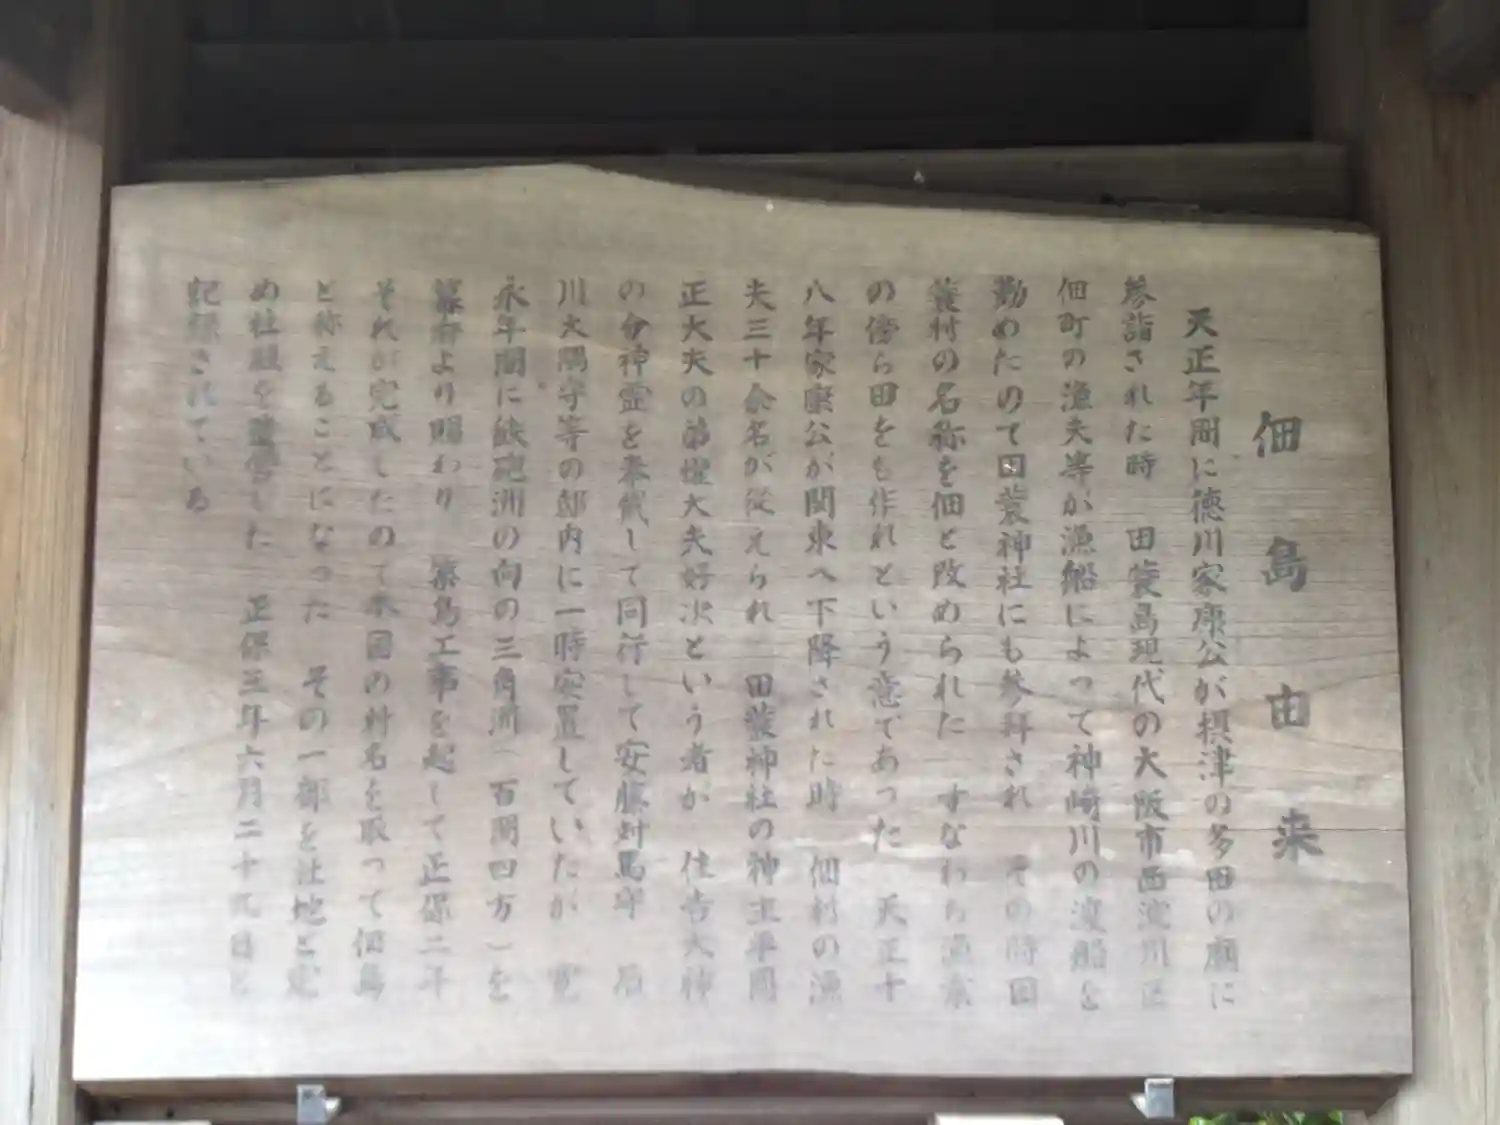 佃島由来
天正年間に徳川家康公が摂津の多田の廟に
参詣された時 田蓑島現代の大阪市西淀川区
佃町の漁夫等が漁船によって神崎川の渡船を
勤めたので田蓑神社にも参拜され その時田
蓑村の名称を佃と改められた すなわち漁業
の傍ら田をも作れという意であった 天正十
八年家康公が関東へ下降された時 佃村の漁
夫三十余名が従えられ 田蓑神社の神主平岡
正大夫の弟権大夫好次という者が 住吉大神
の分神霊を奉戴して同行して安藤対馬守 石
川大隅守等の邸内に一時安置していたが 寛
永年間に鉄砲洲の向の三角洲（百間四方）を
幕府より賜わり 築島工事を起して正保二年
それが完成したので本国の村名を取って佃島
と称えることになった その一部を社地と定
め社殿を造営した 正保三年六月二十九日と
記録されている